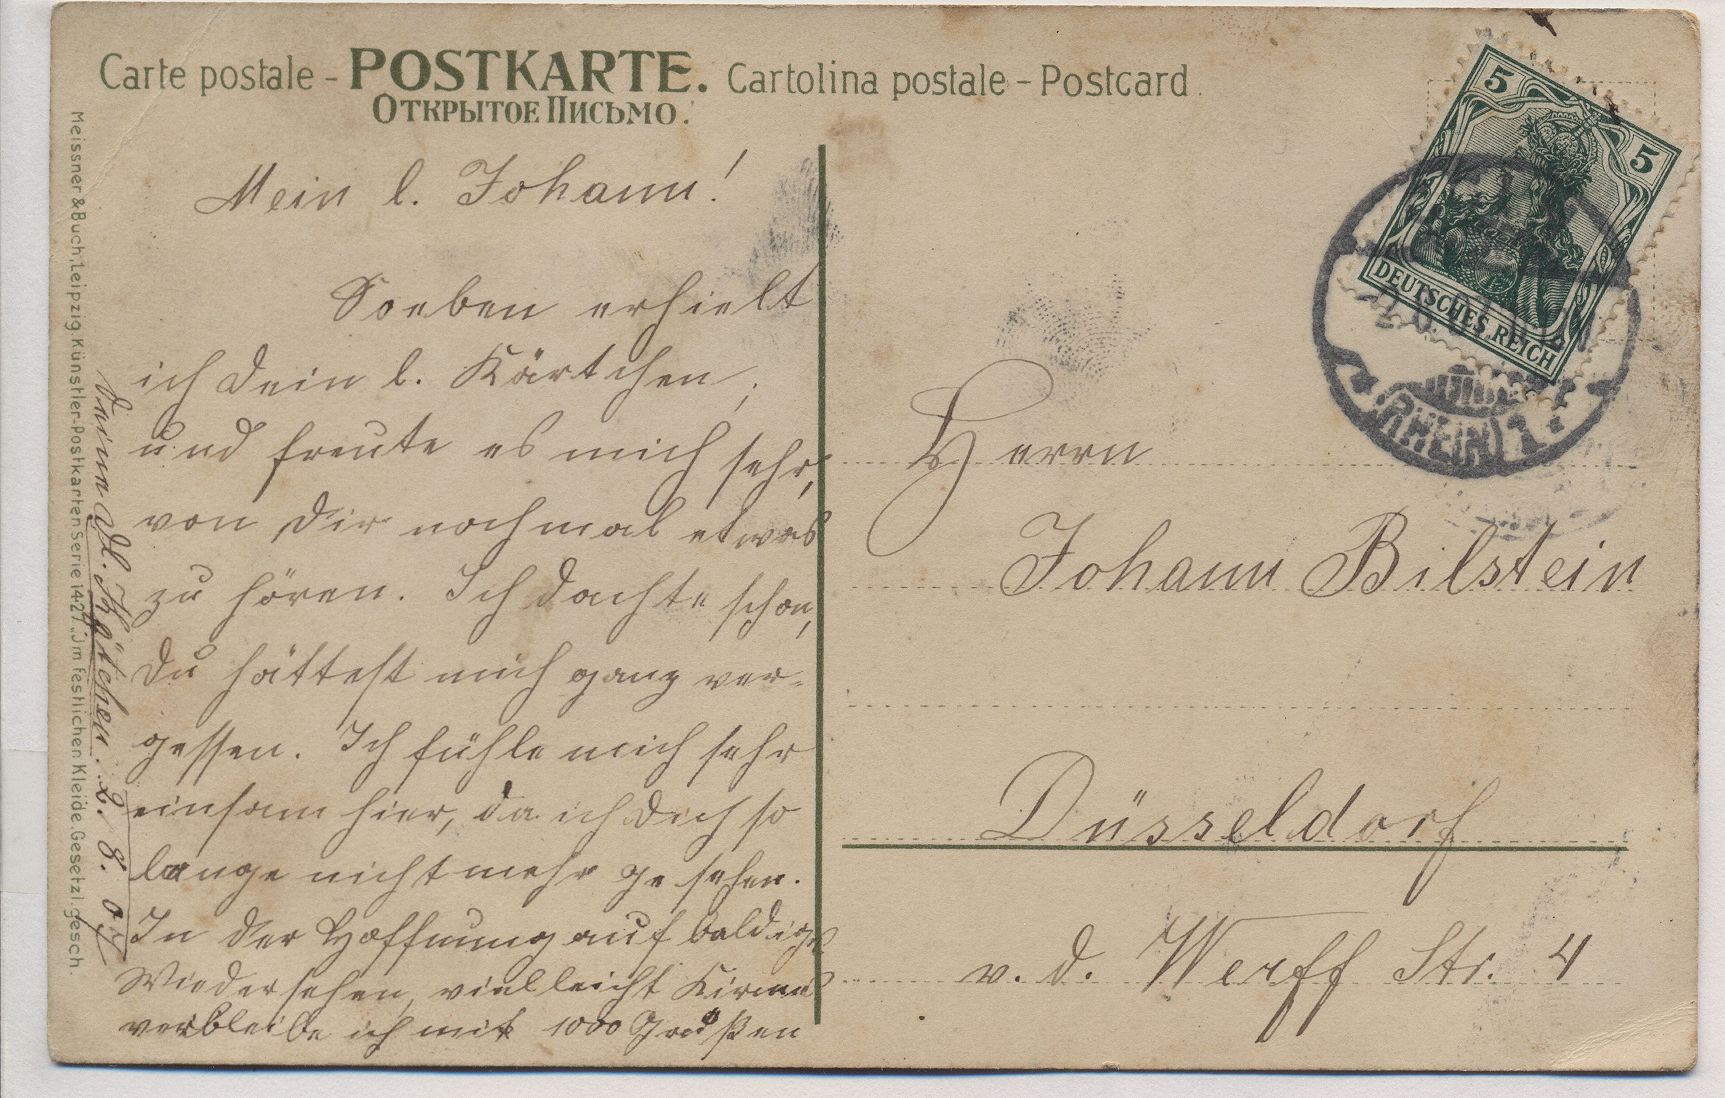 Carte postale - POSTKARTE. Cartolina postale - Postcard
ОТКРЫТОЕ ПИСЬМО.
Meissner & Buch, Leipzig. Künstler-Postkarten Serie 1427. „Im festlichen Kleide. Gesetzl. gesch.
5 5
DEUTSCHES REICH
(RHEIN) 1
Mein l. Johann!
Soeben erhielt
ich Dein l. Kärtchen,
und freute es mich sehr,
von Dir nochmal etwas
zu hören. Ich dachte schon,
Du hättest mich ganz ver-
gessen. Ich fühle mich sehr
einsam hier, da ich Dich so
lange nicht mehr gesehen.
In der Hoffnung auf baldiges
Wiedersehen, vielleicht Kirmes
verbleibe ich mit 1000 Grüßen
Deine Kätchen. 2. 8.
Herrn
Johann Bilstein
Düsseldorf
v. d. Werff Str. 4